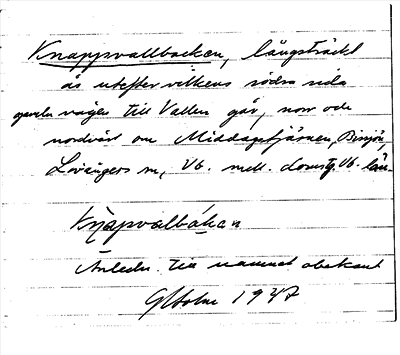 Knappvallbacken, långsträckt
ås utefter vilkens södra sida
gamla vägen till Vallen går, norr och
nordväst om Middagstjärnen, Bissjön,
Lövångers sn, Vb. mell. domsg. Vb. län.
Knapvalbakan
Anledn. till namnet obekant
G Holm 1947